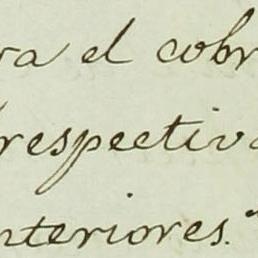 ra el cobr
respectiva
nteriores."